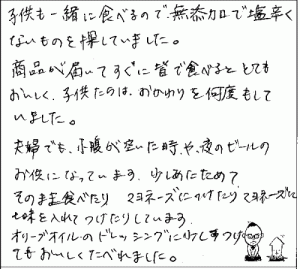 子供も一緒に食べるので、無添加で塩辛く
ないものを探していました。
商品が届いてすぐに皆で食べると とても
おいしく、子供たちは、おかわりを何度もして
いました。
夫婦でも、小腹が空いた時や、夜のビールの
お供になっています。少しあたためて
そのまま食べたり マヨネーズにつけたり、マヨネーズに
七味を入れてつけたりしています。
オリーブオイルのドレッシングに少しつけ
てもおいしくたべれました。